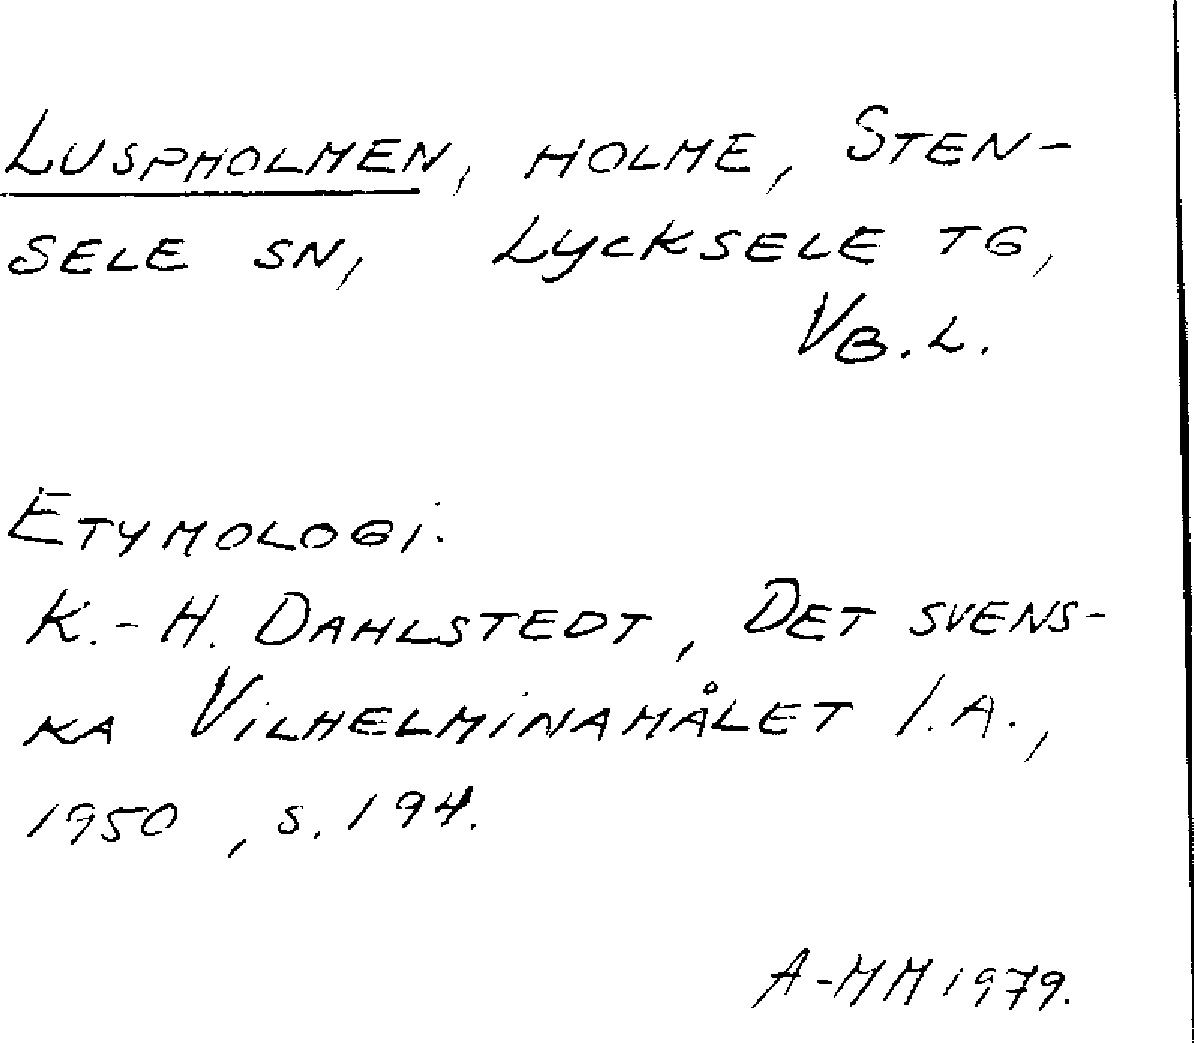 LUSPHOLMEN, HOLME, STEN-
SELE SN, LYCKSELE TG,
VB.L.
ETYMOLOGI.
K.-H. DAHLSTEDT, DET SVENS-
KA VILHELMINAMÅLET I.A.,
1950, S. 194.
A-MM 1979.